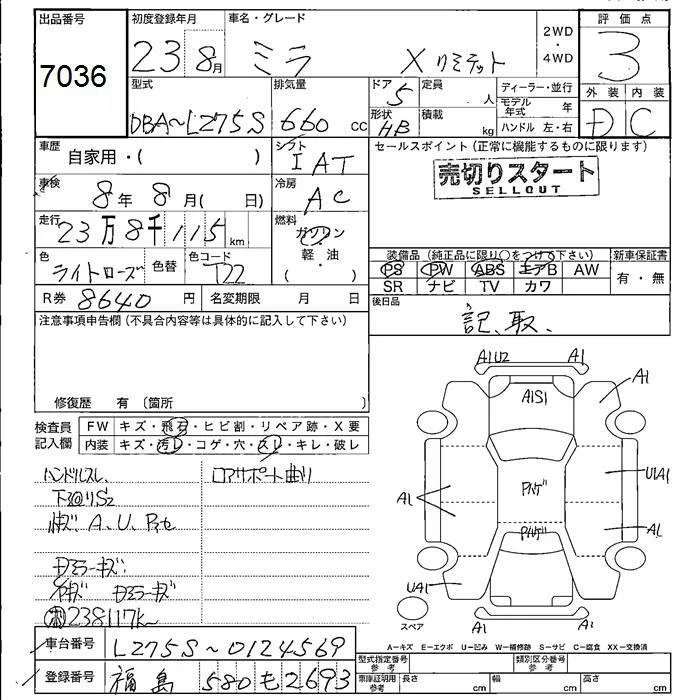 出品番号
7036
初度登録年月
23年8月
車名・グレード
ミラ X リミテッド
2WD
・
4WD
評価点
3
型式
DBA~L275S
排気量
660 cc
ドア
5
形状
HB
定員
人
積載
kg
ディーラー・並行
モデル年式 年
ハンドル 左・右
外装 内装
D C
車歴
自家用・( )
シフト
IAT
セールスポイント (正常に機能するものに限ります)
売切りスタート
SELLOUT
車検
8年8月( 日)
冷房
AC
走行
23万8千115km
燃料
ガソリン
軽・油
( )
色
ライトローズ
色替
色コード
T22
装備品 (純正品に限り○をつけて下さい)
新車保証書
PS PW ABS エアB AW
有・無
SR ナビ TV カワ
R券 8640 円
名変期限 月 日
後日品
記、取、
注意事項申告欄(不具合内容等は具体的に記入して下さい)
修復歴 有 (箇所 )
検査員
記入欄
FW キズ・飛石・ヒビ割・リペア跡・X要
内装 キズ・汚レ・コゲ・穴・スレ・キレ・破レ
ハンドルスレ、
ロアサポート曲り
下回り、S2
A、U、P
ミラーキズ
ミラーキズ
238117k~
A1U2
A1
A1
A1S1
A1
Pハゲ
U1A1
Pハゲ
A1
UA1
スペア
A1
A1
A-キズ E-エクボ U-凹み W-補修跡 S-サビ C-腐食 XX-交換済
車台番号
L275S~0124569
登録番号
福島 580 も 2693
型式指定番号
参考
類別区分番号
参考
車庫証明用
参考
長さ cm
幅 cm
高さ cm